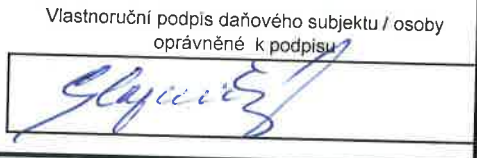 Vlastnoruční podpis daňového subjektu / osoby
oprávněné k podpisu